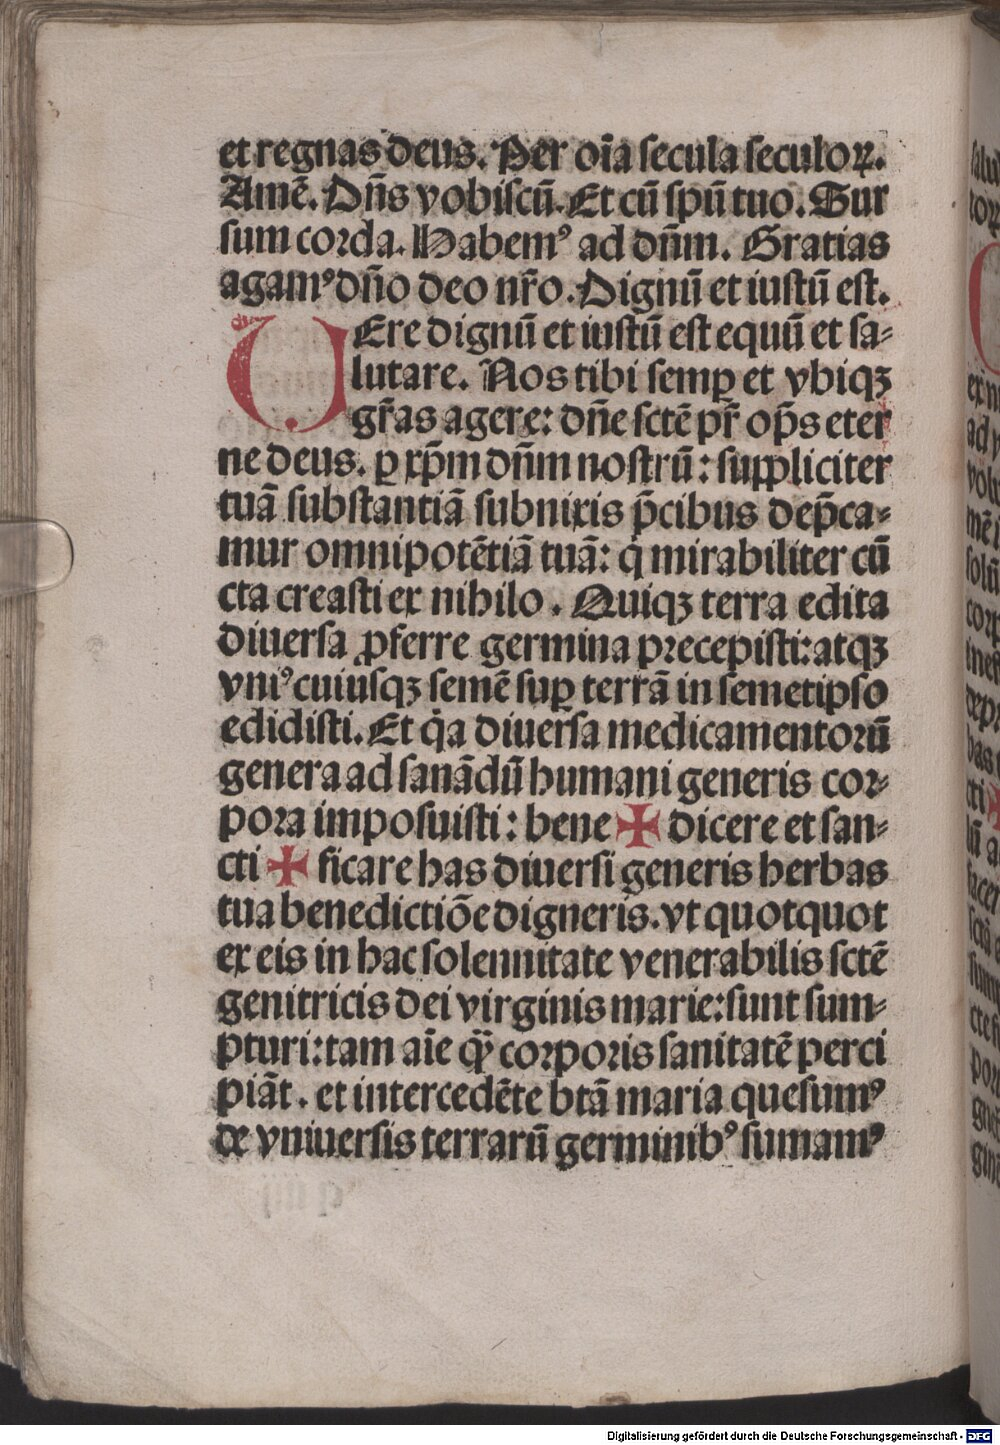 et regnas deus. Per oīa secula seculoꝝ.
Amē. Dn̄s vobiscū. Et cū spū tuo. Sur
sum corda. Habemꝰ ad dn̄m. Gratias
agamꝰ dn̄o deo nr̄o. Dignū et iustū est.
VEre dignū et iustū est equū et sa-
lutare. Nos tibi semꝑ et vbiqꝫ
gr̄as agere: dn̄e sctē pr̄ op̄s eter
ne deus. ꝑ xp̄m dn̄m nostrū: suppliciter
tuā substantiā subnixis p̄cibus dep̄ca-
mur omnipotētiā tuā: qͥ mirabiliter cū
cta creasti ex nihilo. Quiqꝫ terra edita
diuersa ꝓferre germina precepisti: atqꝫ
vniꝰcuiusqꝫ semē suꝑ terrā in semetipso
edidisti. Et qͥa diuersa medicamentorū
genera ad sanādū humani generis cor-
pora imposuisti: bene ✠ dicere et san-
cti ✠ ficare has diuersi generis herbas
tua benedictiōe digneris. vt quotquot
ex eis in hac solennitate venerabilis sctē
genitricis dei virginis marie: sunt sum-
pturi: tam aīe qͣꝫ corporis sanitatē perci
piāt. et intercedēte btā maria quesumꝰ
de vniuersis terrarū germinibꝰ sumamꝰ
Digitalisierung gefördert durch die Deutsche Forschungsgemeinschaft - DFG